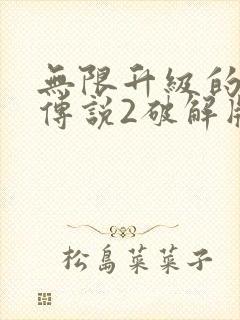 無限升級的
傳說2破解版
松島菜菜子